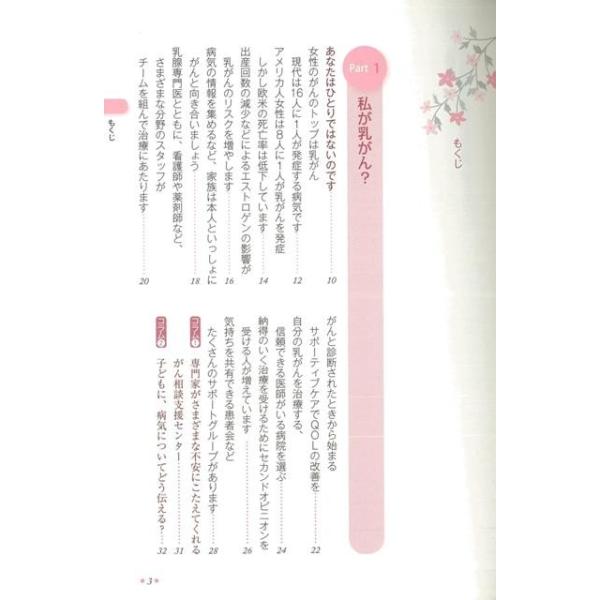 もくじ
Part 1
私が乳がん？
あなたはひとりではないのです……10
女性のがんのトップは乳がん
現代は16人に1人が発症する病気です……12
アメリカ人女性は8人に1人が乳がんを発症
しかし欧米の死亡率は低下しています……14
出産回数の減少などによるエストロゲンの影響が
乳がんのリスクを増やします……16
病気の情報を集めるなど、家族は本人といっしょに
がんと向き合いましょう……18
乳腺専門医とともに、看護師や薬剤師など、
さまざまな分野のスタッフが
チームを組んで治療にあたります……20
がんと診断されたときから始まる
サポーティブケアでQOLの改善を……22
自分の乳がんを治療する、
信頼できる医師がいる病院を選ぶ……24
納得のいく治療を受けるためにセカンドオピニオンを
受ける人が増えています……26
気持ちを共有できる患者会など
たくさんのサポートグループがあります……28
コラム❶ 専門家がさまざまな不安にこたえてくれる
がん相談支援センター……31
コラム❷ 子どもに、病気についてどう伝える？……32
もくじ
3